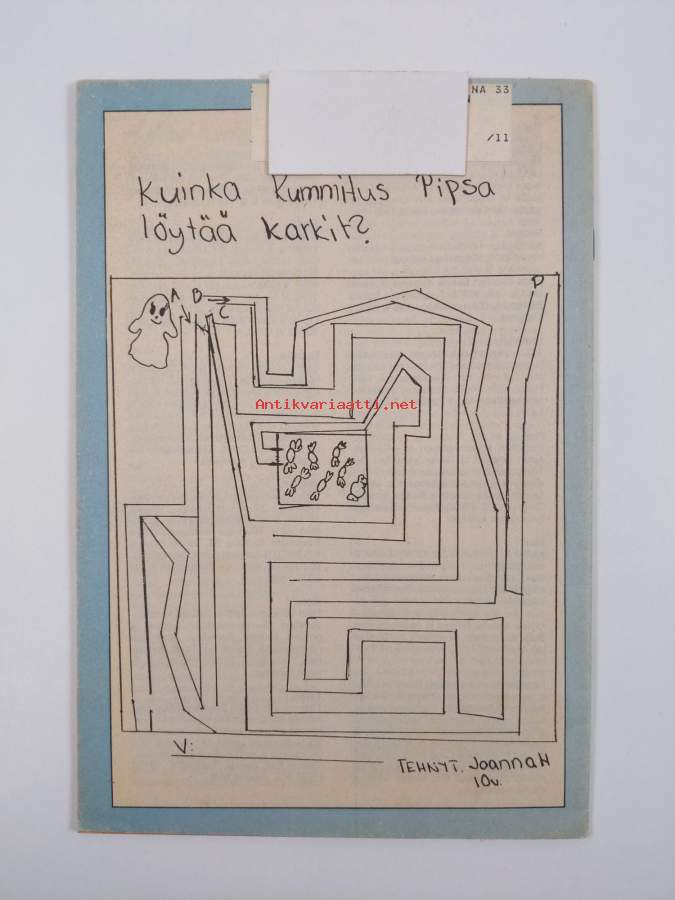 NA 33
/11
Kuinka Kummitus Pipsa
löytää karkit?
A B C
P
Antikvariaatti.net
V:
TEHNYT. Joanna H
10v.